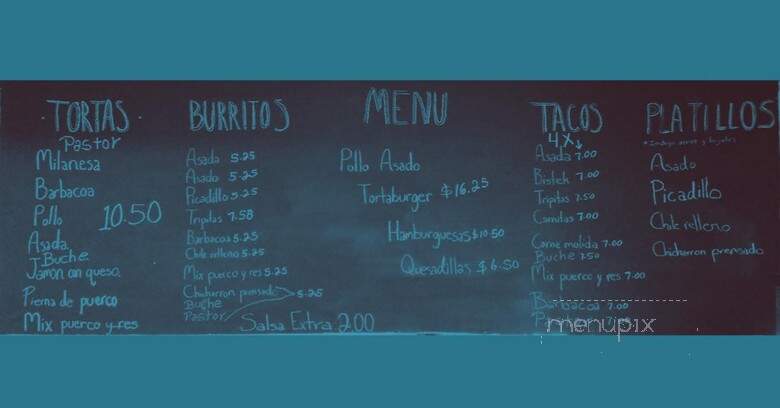 TORTAS
Pastor
Milanesa
Barbacoa
Pollo
10.50
Asada
Buche
Jamón con queso
Pierna de puerco
Mix puerco y res
BURRITOS
Asada 5.25
Asado 5.25
Picadillo 5.25
Tripitas 7.58
Barbacoa 5.25
Chile relleno 5.25
Mix puerco y res 5.25
Chicharron prensado 5.25
Buche
Pastor
Salsa Extra 2.00
MENU
Pollo Asado
Tortaburger $16.25
Hamburguesas $10.50
Quesadillas $6.50
TACOS
4x
Asada 7.00
Bistek 7.00
Tripitas 7.50
Carnitas 7.00
Carne molida 7.00
Buche 7.50
Mix puerco y res 7.00
Barbacoa 7.00
menupix
PLATILLOS
*Incluye arroz y frijoles
Asado
Picadillo
Chile relleno
Chicharron prensado